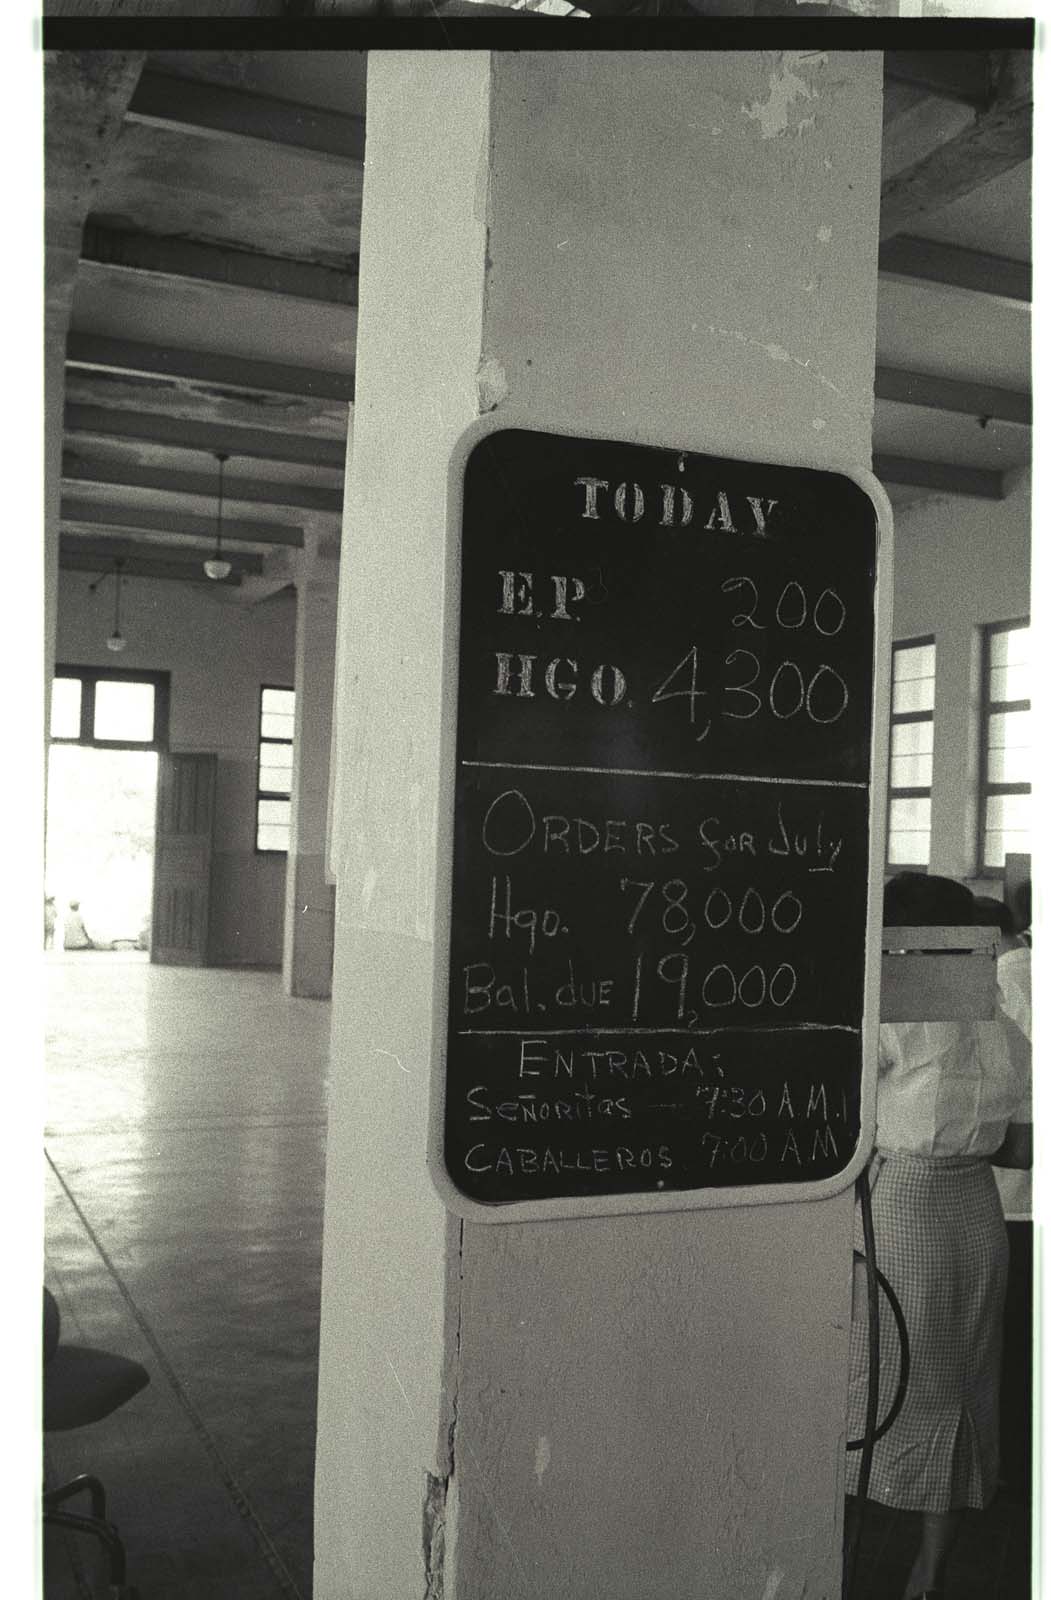 TODAY
E.P. 200
HGO. 4,300
ORDERS for July
Hgo. 78,000
Bal. due 19,000
ENTRADA:
SEÑORitas — 7:30 A.M.
CABALLEROS 7:00 A.M